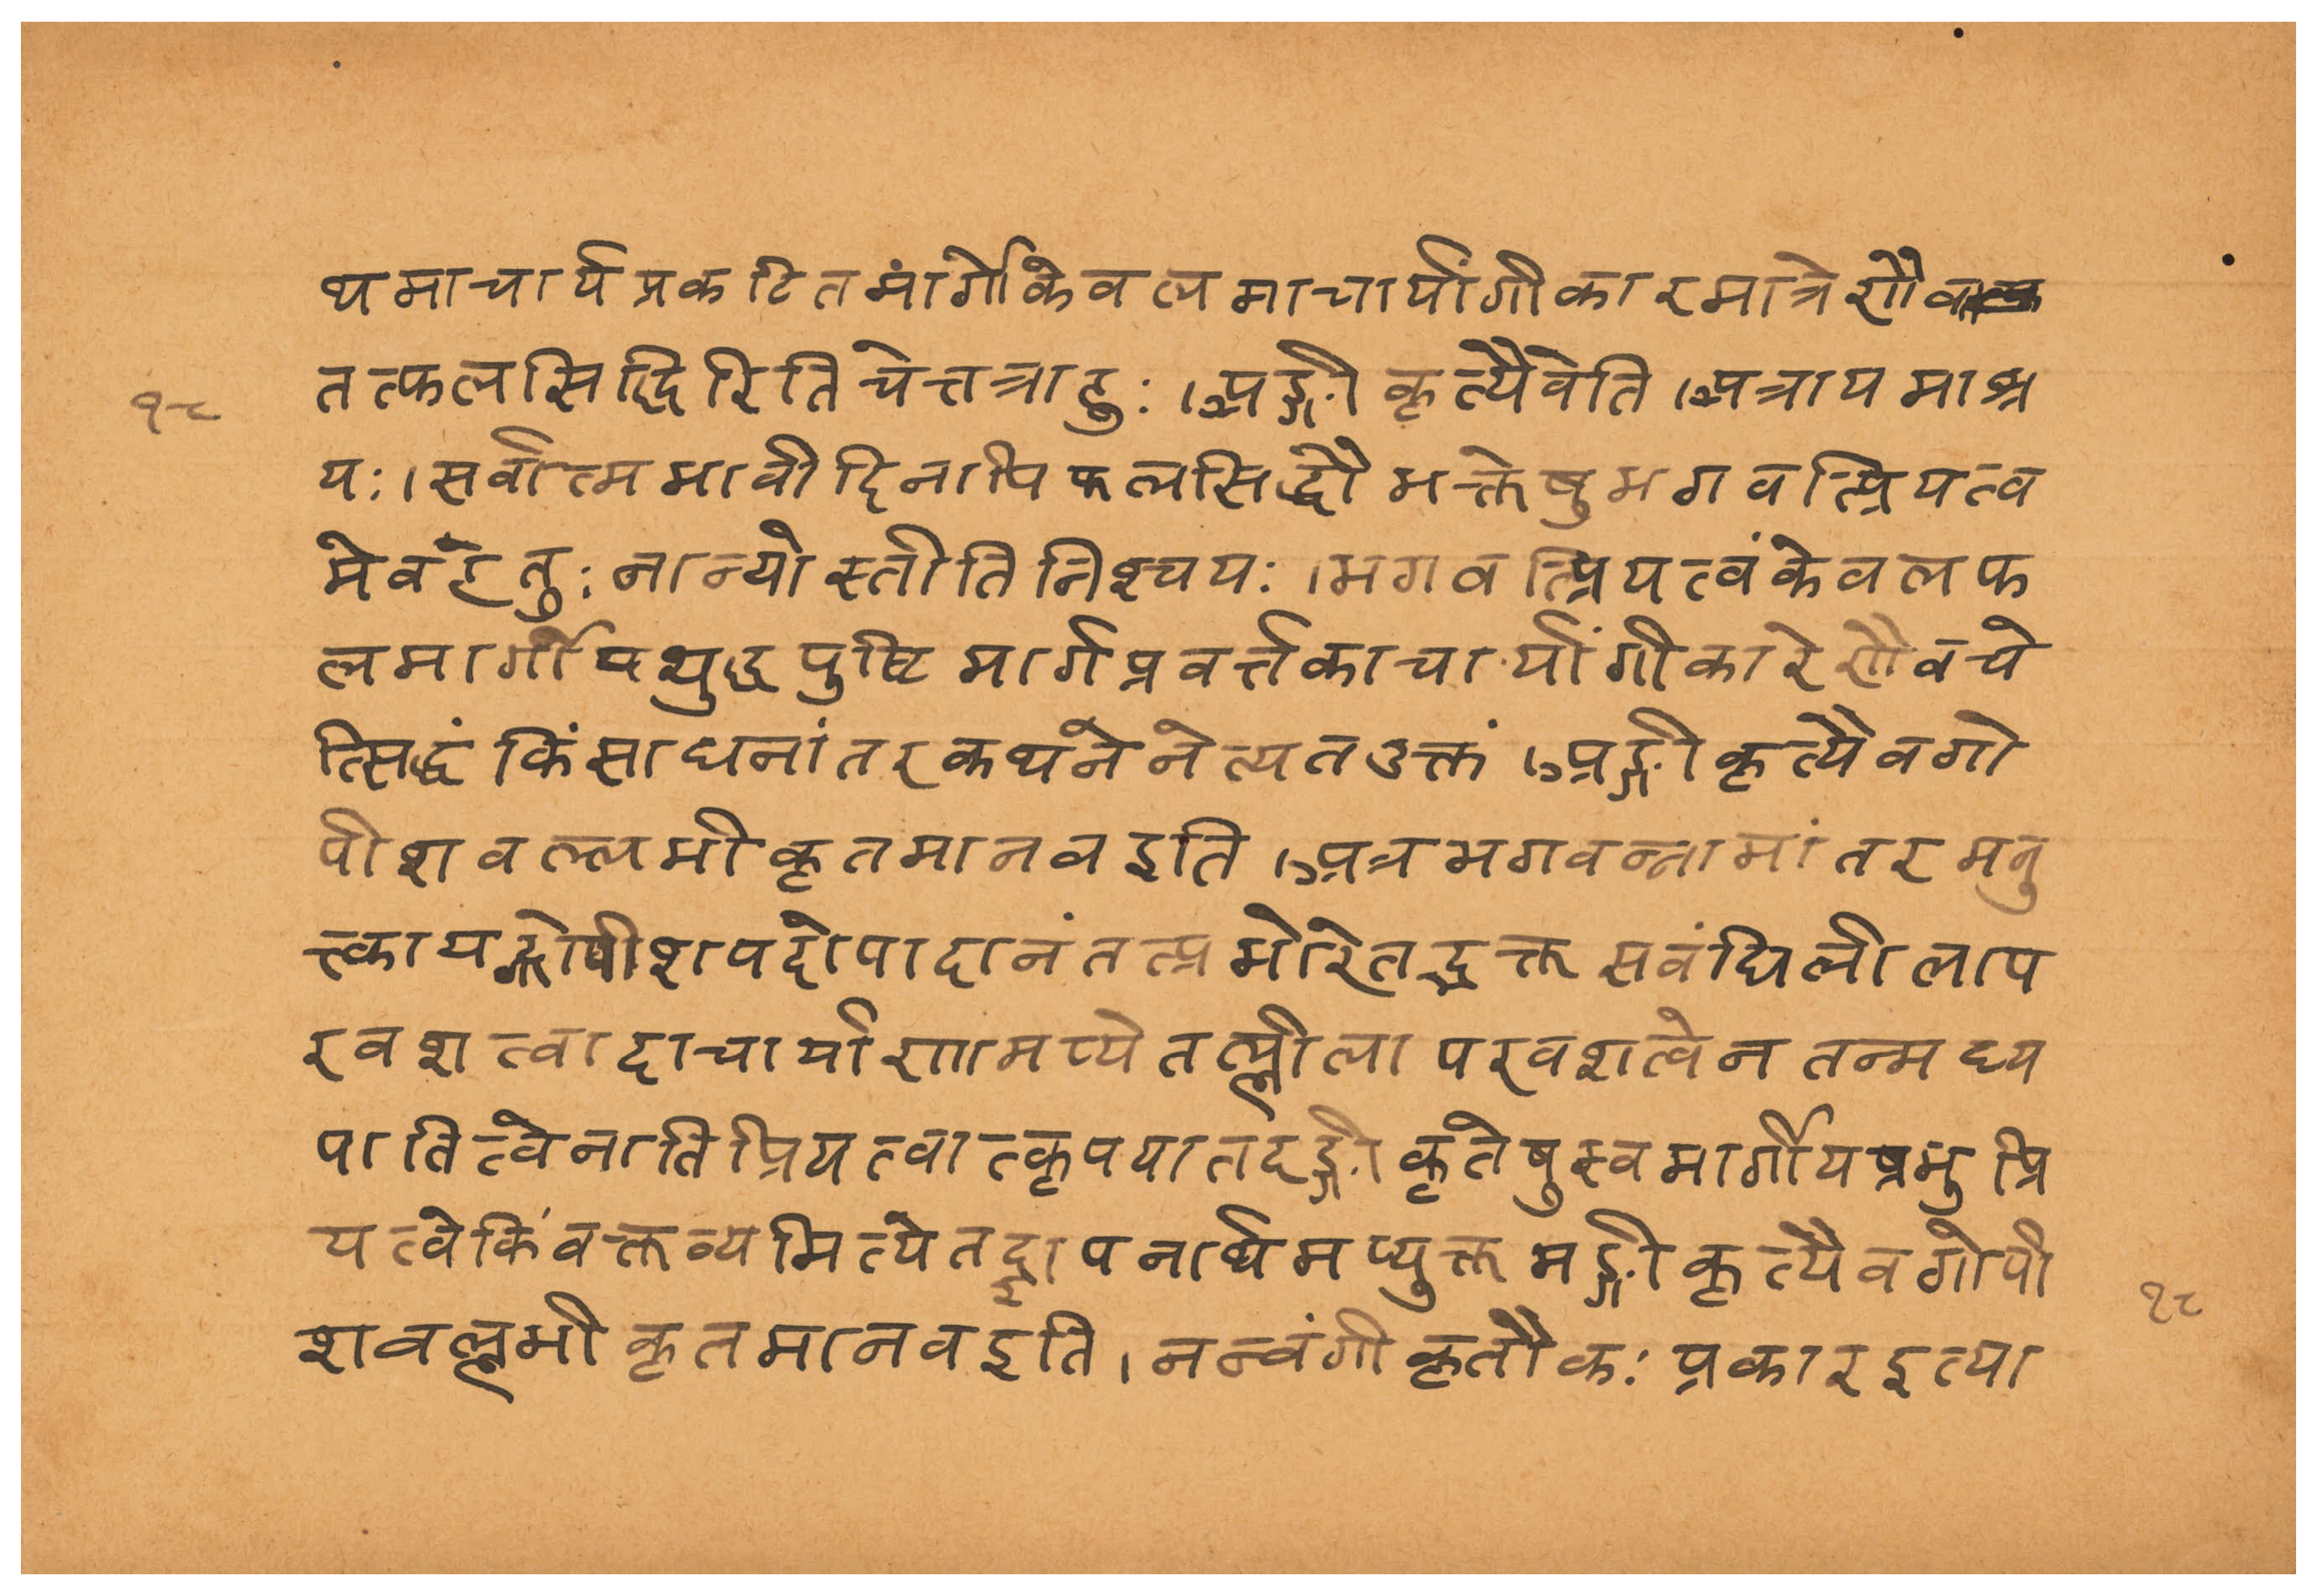 थमाचार्यप्रकटितमार्गेकेवलमाचार्यांगीकारमात्रेणैव
तत्फलसिद्धिरितिचेत्तत्राहुः।अङ्गीकृत्यैवेति।अत्रायमाश्र
१८
यः।सर्वात्मभावीदिनापिफलसिद्धौभक्तेषुभगवत्प्रियत्व
मेवहेतुःनान्योस्तीतिनिश्चयः।भगवत्प्रियत्वंकेवलफ
लमार्गीयशुद्धपुष्टिमार्गप्रवर्त्तकाचार्यांगीकारेणैवचे
त्सिद्धंकिंसाधनांतरकथनेनेत्यतउक्तं।अङ्गीकृत्यैवगो
पीशवल्लभीकृतमानवइति।अत्रभगवन्नामांतरमनु
त्त्कायद्गोपीशपदोपादानंतत्प्रभोरेतद्भक्तसवंधिलीलाप
रवशत्वादाचार्याणामप्येतल्लीलापरवशत्वेनतन्मध्य
पातित्वेनातिप्रियत्वात्कृपयातदङ्गीकृतेषुस्वमार्गीयप्रभुप्रि
यत्वेकिंवक्तव्यमित्येतद्ज्ञापनार्थमप्युक्तमङ्गीकृत्यैवगोपी
१८
शवल्लभीकृतमानवइति।नन्वंगीकृतौकःप्रकारइत्या